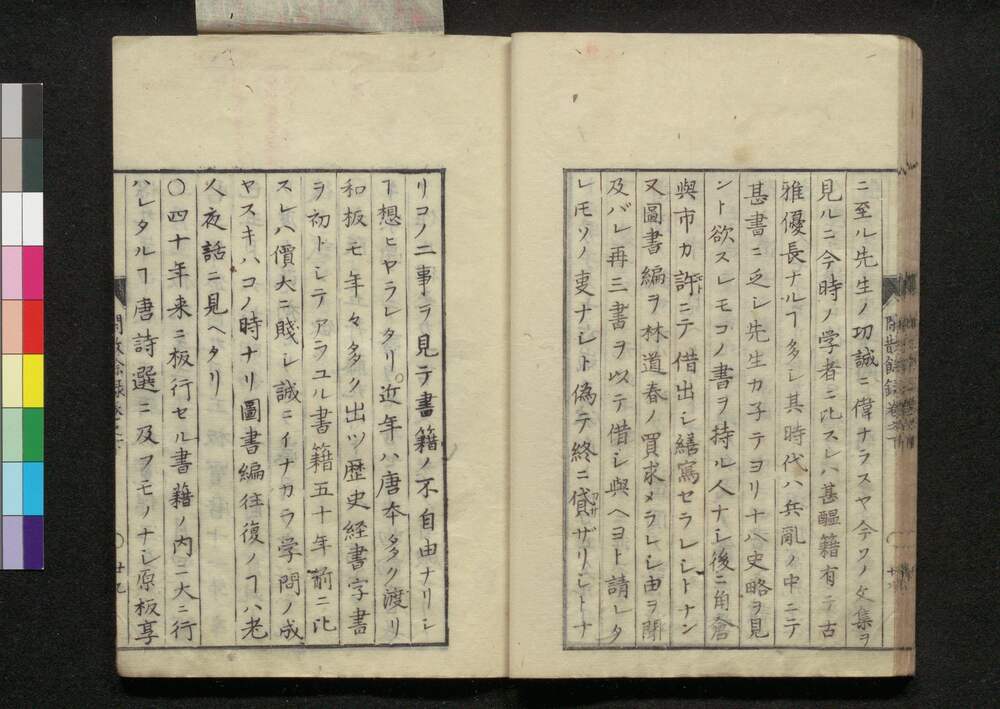 ニ至ル先生ノ功誠ニ偉ナラスヤ今ソノ文集ヲ
見ルニ今時ノ学者ニ比スレハ甚醞籍有テ古
雅優長ナルヿ多シ其時代ハ兵亂ノ中ニテ
甚書ニ乏シ先生カ子テヨリ十八史略ヲ見
ント欲スレモコノ書ヲ持ル人ナシ後ニ角倉
與市カ許ニテ借出シ繕寫セラレシトナン
又圖書編ヲ林道春ノ買求メラレシ由ヲ聞
及バレ再三書ヲ以テ借シ與ヘヨト請レタ
レモソノ叓ナシト偽テ終ニ貸ザリシトナ
リコノ二事ヲ見テ書籍ノ不自由ナリシ
ヿ想ヒヤラレタリ。近年ハ唐本多ク渡リ
和板モ年々多ク出ツ歴史経書字書
ヲ初トシテアラユル書籍五十年前ニ比
スレハ價大ニ賤シ誠ニイナカラ学問ノ成
ヤスキハコノ時ナリ圖書編往復ノヿハ老
人夜話ニ見ヘタリ
〇四十年来ニ板行セル書籍ノ内ニ大ニ行
ハレタルヿ唐詩選ニ及フモノナシ原板享